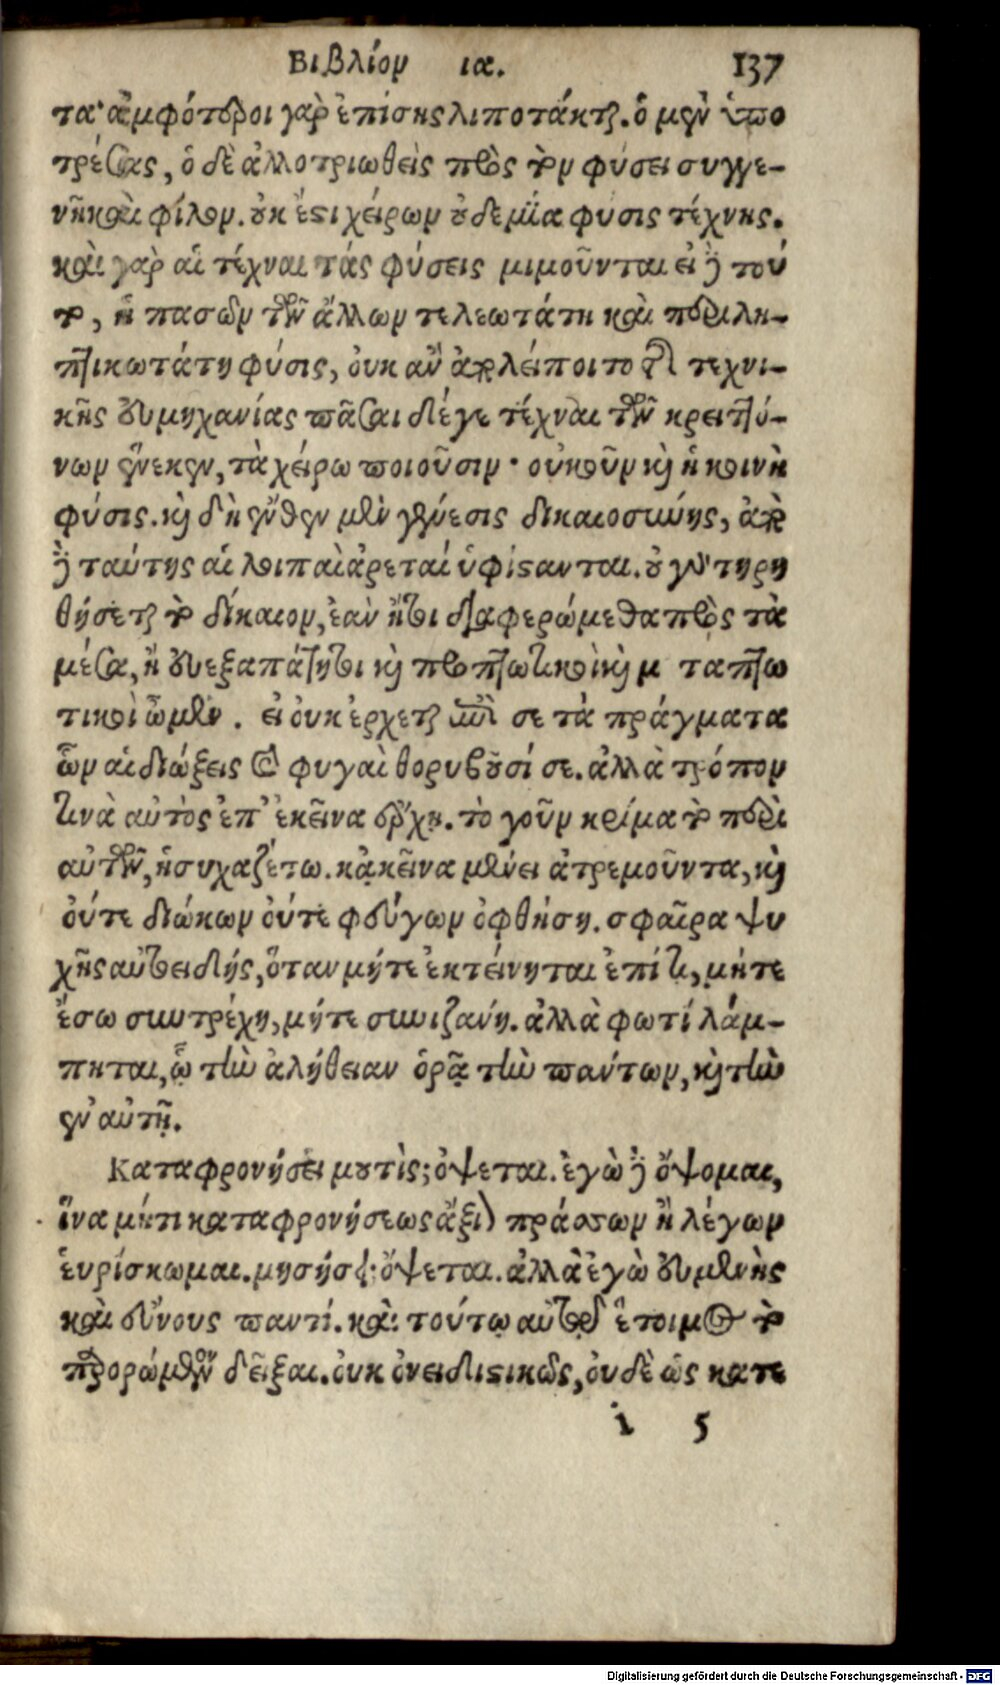 Βιβλίον ια. 137
τα· ἀμφότεροι γὰρ ἐπίσης λιποτάκται. ὁ μὲν ὑπο
τρέσας, ὁ δὲ ἀλλοτριωθεὶς πρὸς τὸν φύσει συγγε-
νῆ καὶ φίλον. οὐκ ἔστι χείρων οὐδεμία φυσις τέχνης.
καὶ γὰρ αἱ τέχναι τάς φύσεις μιμοῦνται εἰ δὲ τοῦ
το, ἡ πασῶν τῶν ἄλλων τελεωτάτη καὶ περιλη-
πτικωτάτη φύσις, οὐκ ἂν ἀπολείποιτο τῆς τεχνι-
κῆς εὐμηχανίας πᾶσαι δέ γε τέχναι τῶν κρειττό-
νων ἕνεκεν, τὰ χείρω ποιοῦσιν· οὐκοῦν καὶ ἡ κοινὴ
φύσις. καὶ δὴ ἔνθεν μὲν γένεσις δικαιοσύνης, ἀπὸ
δὲ ταύτης αἱ λοιπαὶ ἀρεταί ὑφίστανται. οὐ γὰρ τηρη
θήσεται τὸ δίκαιον, ἐὰν ἤτοι διαφερώμεθα πρὸς τὰ
μέσα, ἢ εὐεξαπάτητοι καὶ προπτωτικοὶ καὶ μ ταπτω
τικοὶ ὦμεν. εἰ οὐκ ἔρχεται ἐπὶ σε τὰ πράγματα
ὧν αἱ διώξεις καὶ φυγαὶ θορυβοῦσί σε. ἀλλὰ τρόπον
τινὰ αὐτὸς ἐπ' ἐκεῖνα ἔρχῃ. τὸ γοῦν κρίμα τὸ περὶ
αὐτῶν, ἡσυχαζέτω. κἀκεῖνα μένει ἀτρεμοῦντα, καὶ
οὔτε διώκων οὔτε φεύγων ὀφθήσῃ. σφαῖρα ψυ
χῆς αὐτοειδής, ὅταν μήτε ἐκτείνηται ἐπί τι, μήτε
ἔσω συντρέχῃ, μήτε συνιζάνῃ. ἀλλὰ φωτί λάμ-
πηται, ᾧ τὴν ἀλήθειαν ὁρᾷ τὴν πάντων, καὶ τὴν
ἐν αὐτῇ.
Καταφρονήσει μου τὶς; ὄψεται. ἐγὼ δὲ ὄψομαι,
ἵνα μήτι καταφρονήσεως ἄξιον πράσσων ἢ λέγων
εὑρίσκωμαι. μησήσει; ὄψεται. ἀλλὰ ἐγὼ εὐμενὴς
καὶ εὔνους παντί. καὶ τούτῳ αὐτῷ ἕτοιμος τὸ
παρορώμενον δεῖξαι. οὐκ ὀνειδιστικῶς, οὐδὲ ὡς κατε
i 5
Digitalisierung gefördert durch die Deutsche Forschungsgemeinschaft - DFG